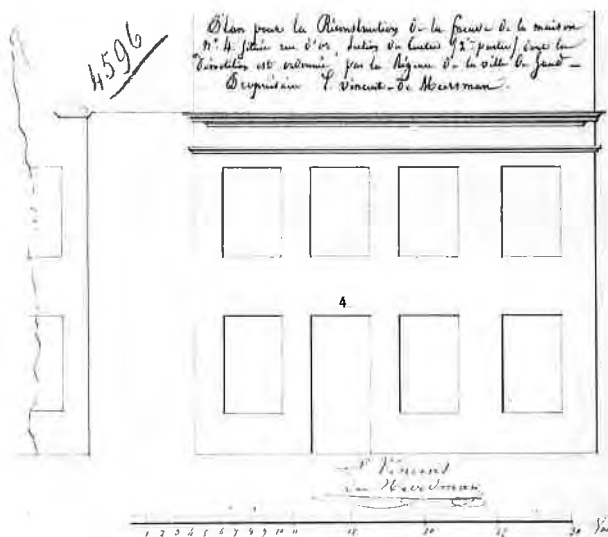 4596
Plan pour la Réconstruction de la façade de la maison
N° 4. située rue d'or, Section du (2me partie) dont la
Démolition est ordonnée par la Régence de la ville de Gand –
Propriétaire P. Vincent-De Meersman.
4
P Vincent
De Meersman
1 2 3 4 5 6 7 8 9 10 11 15 20 25 30